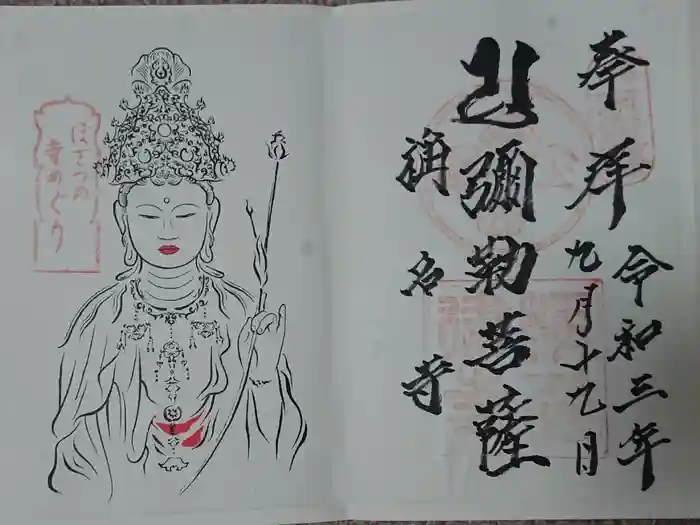 奉拝
令和三年
九月十九日
弥勒菩薩
称名寺
ぼさつの
寺めぐり